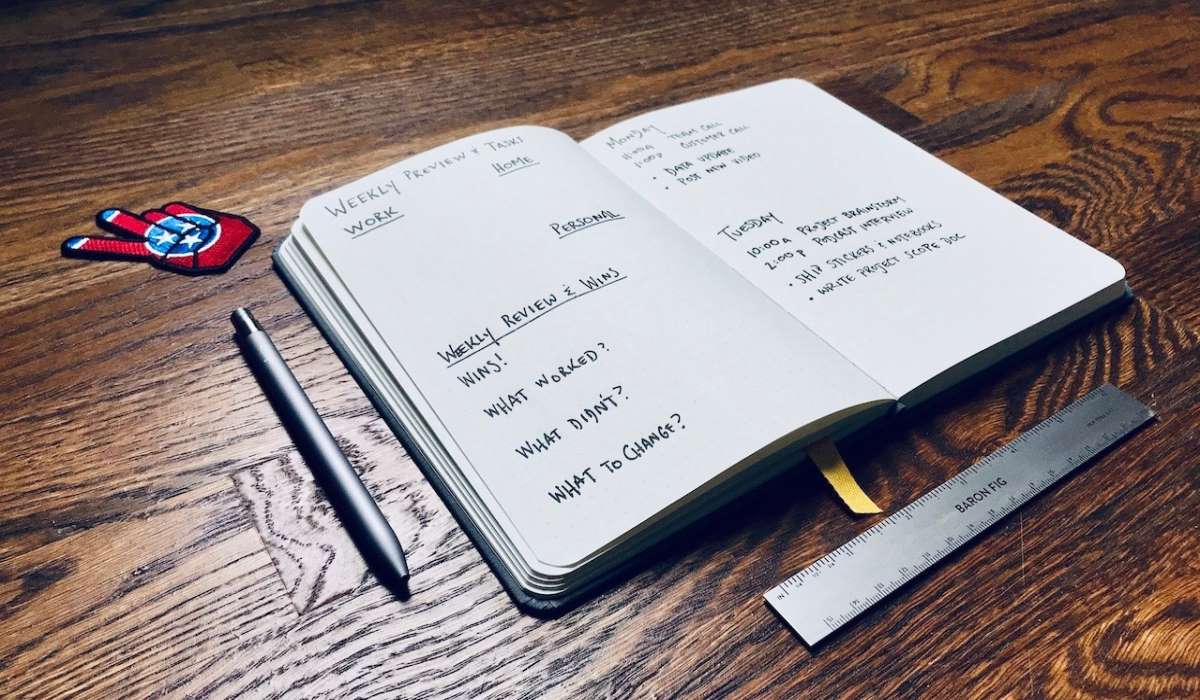 WEEKLY PREVIEW & TASKS
WORK
HOME
PERSONAL
WEEKLY REVIEW & WINS
WINS!
WHAT WORKED?
WHAT DIDN'T?
WHAT TO CHANGE?
MONDAY
11:00A TEAM CALL
1:00P CUSTOMER CALL
• DATA UPDATE
• POST NEW VIDEO
TUESDAY
10:00A PROJECT BRAINSTORM
2:00P PODCAST INTERVIEW
• SHIP STICKERS & NOTEBOOKS
• WRITE PROJECT SCOPE DOC
BARON FIG